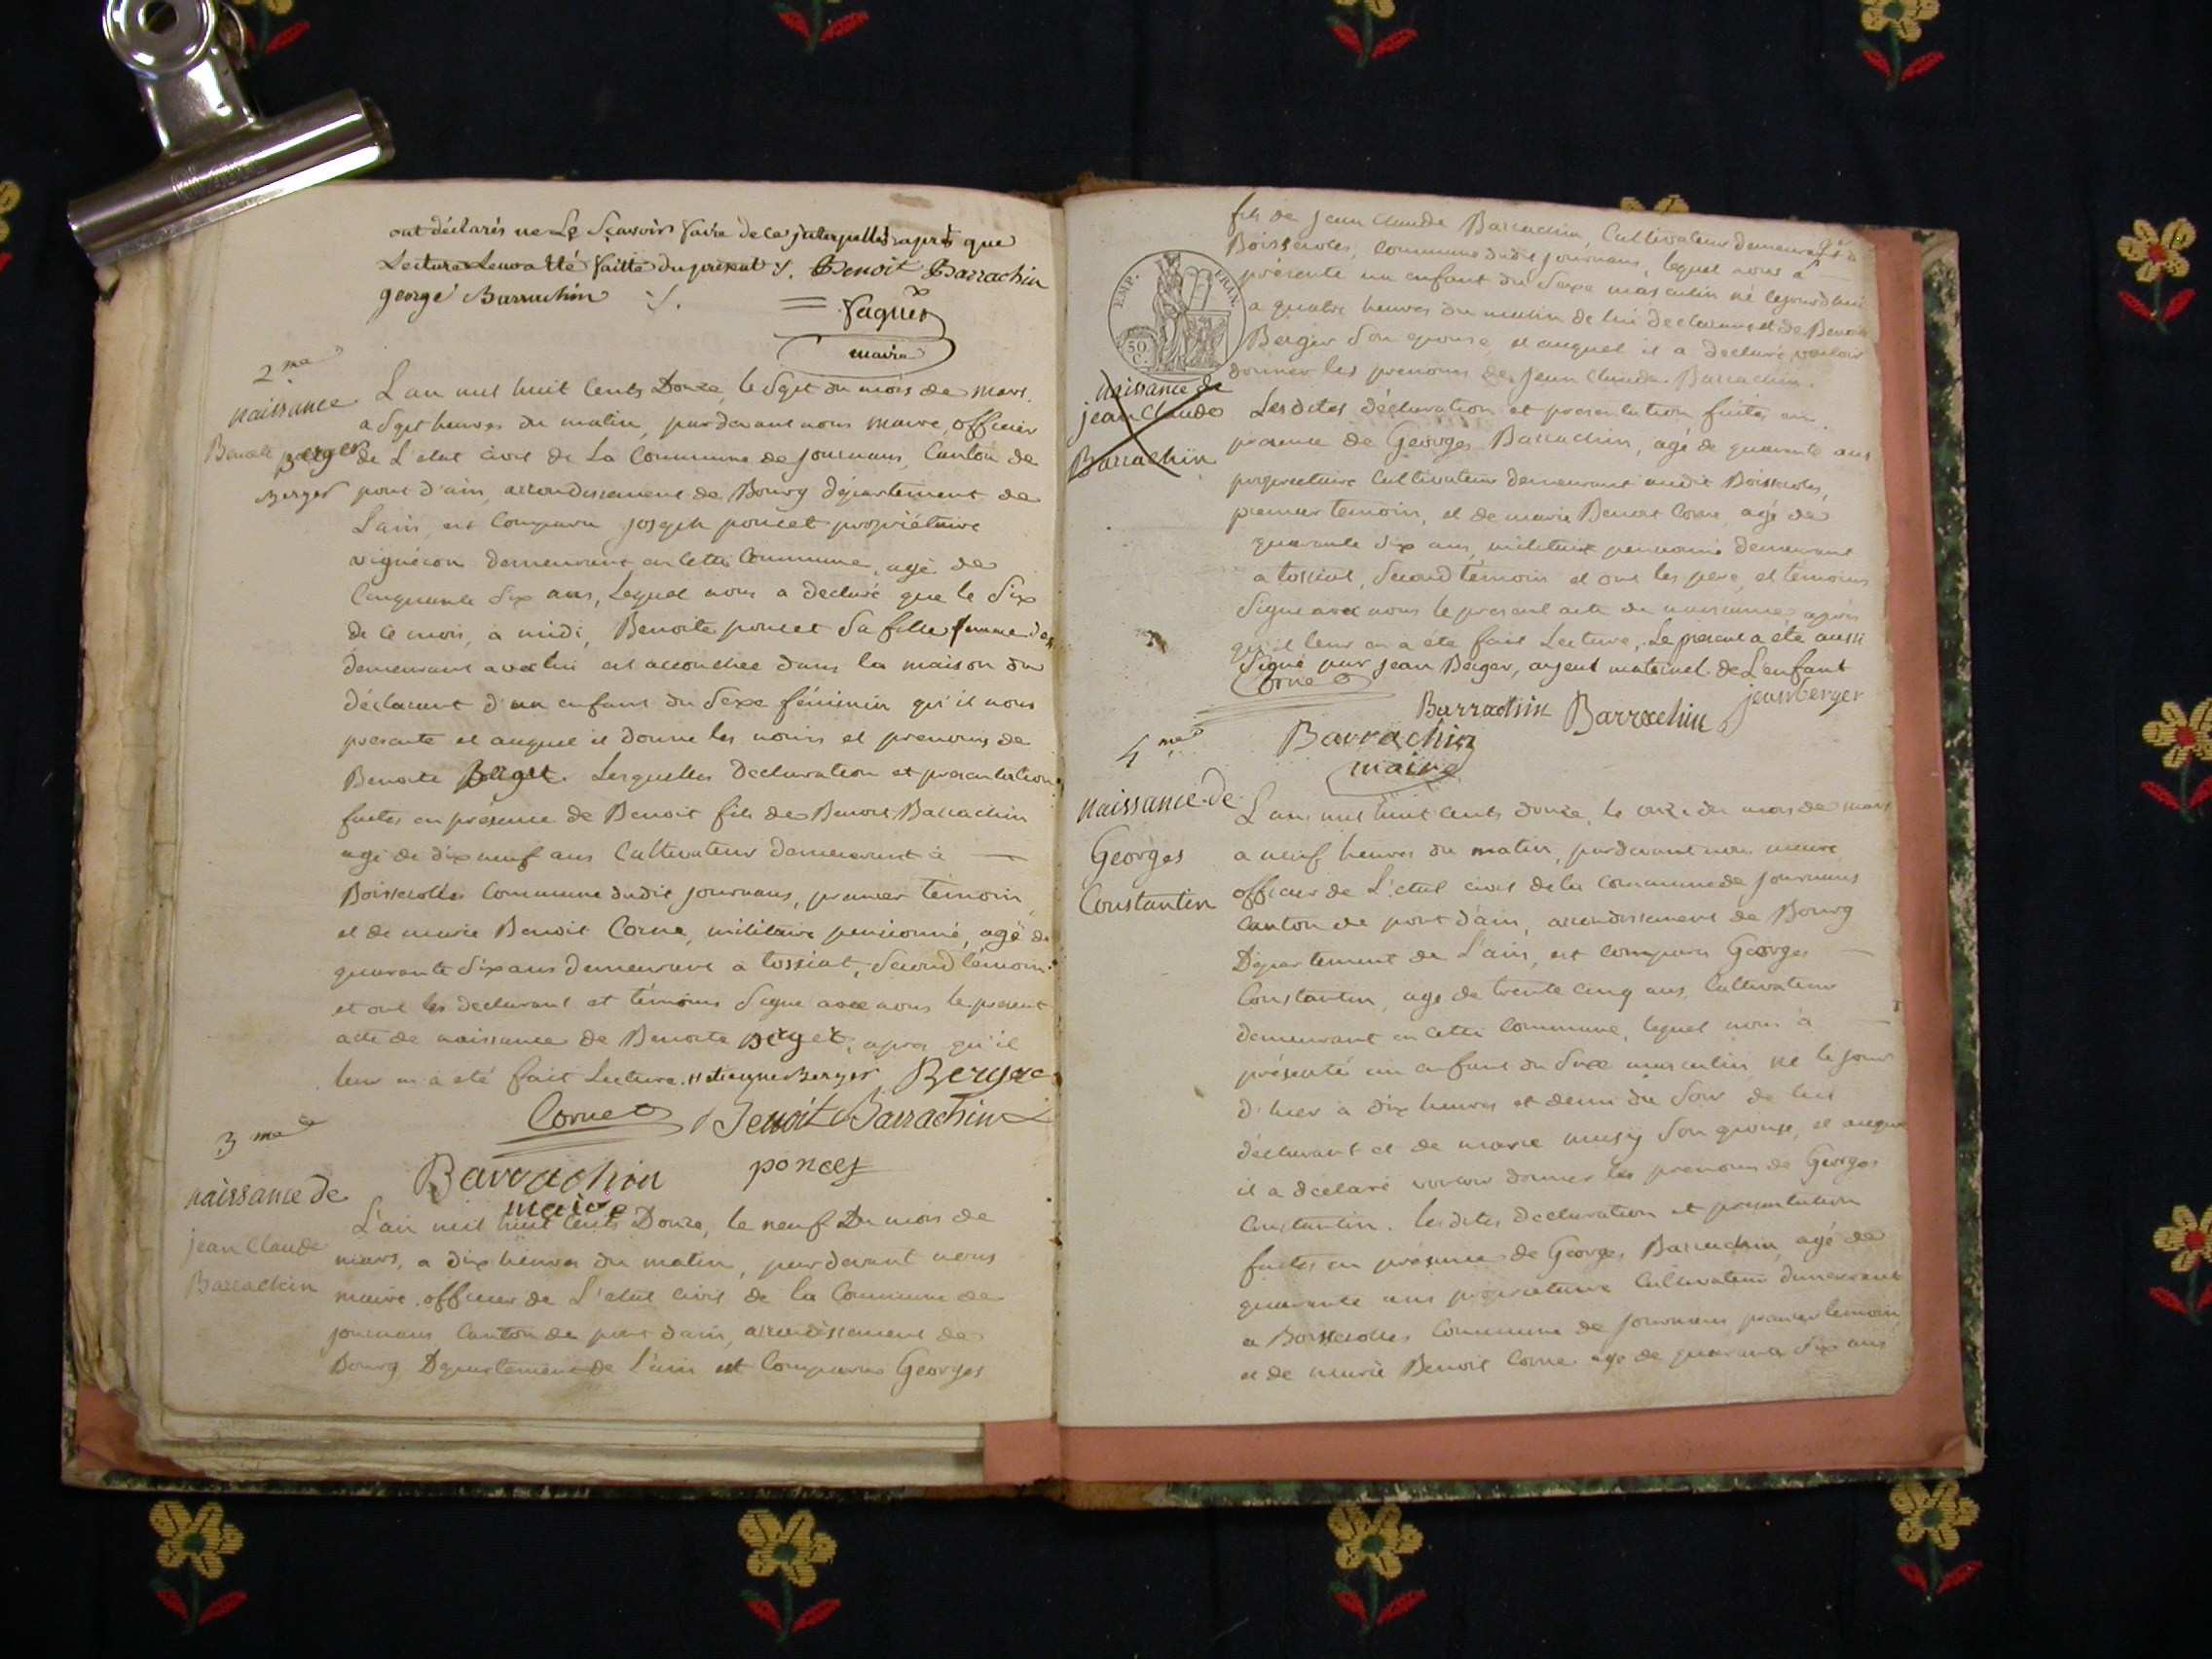 ont déclarés ne Le Sçavoir faire de ce interpellés après que
Lecture Leur a Eté faitte du present ./. Benoit Barrachin
george Barrachin ./.
faguet
maire
2.me
naissance
Benoite
Berger
L'an mil huit Cents Douze, le Sept du mois de mars,
a Sept heures du matin, pardevant nous maire, officier
de L'etat civil de La Commune de journans, Canton de
pont d'ain, arrondissement de Bourg département de
L'ain, est Comparu joseph poncet propriétaire
vigneron demeurant en Cette Commune, agé de
Cinquante Six ans, Lequel nous a declaré que le Six
de ce mois, à midi, Benoite poncet Sa fille
demeurant avec lui est accouchée dans la maison du
déclarant d'un enfant du Sexe féminin qu'il nous
presente et auquel il donne les noms et prenoms de
Benoite Lesquelles declaration et presentation
faites en présence de Benoit fils de Benoit Barrachin
agé de dix neuf ans Cultivateur demeurant à
Boisserolles Commune dudit journans, premier témoin
et de marie Benoit Corne, militaire pensionné, agé de
quarante Six ans demeurant a tossiat, Second témoin
et ont les declarant et témoins Signé avec nous le present
acte de naissance de Benoite après qu'il
leur en a été fait Lecture. etienne Berger Berger
Corne Benoit Barrachin
Barrachin poncet
maire
3 me
naissance de
jean Claude
Barrachin
L'an mil huit Cents Douze, le neuf Du mois de
mars, a dix heures du matin, pardevant nous
maire, officier de L'etat civil de la Commune de
journans Canton de pont d'ain, arrondissement de
Bourg Département de L'ain est Comparu Georges
fils de jean Claude Barrachin, Cultivateur demeurant à
Boisserolles, Commune dudit journans, lequel nous a
présenté un enfant du Sexe masculin né
a quatre heures du matin de lui declarant et de Benoite
Berger Son epouse, et auquel il a declaré vouloir
donner les prenoms de jean Claude Barrachin.
EMP. FRAN.
50 C.
naissance de
jean Claude
Barrachin
Lesdites déclaration et presentation faites en
présence de Georges Barrachin, agé de quarante ans
propriétaire Cultivateur demeurant audit Boisserolles,
premier temoin, et de marie Benoit Corne, agé de
quarante Six ans, militaire pensionné demeurant
a tossiat, Second témoin et ont les pere, et témoins
Signé avec nous le present acte de naissance, après
qu'il leur en a ete fait Lecture, Le present a été aussi
Signé par jean Berger, ayeul maternel de L'enfant
Corne
Barrachin Barrachin jean berger
Barrachin
maire
4 me
naissance de
Georges
Constantin
L'an mil huit Cents douze, le onze du mois de mars
a neuf heures du matin, pardevant nous maire
officier de L'etat civil de la Commune de journans
Canton de pont d'ain, arrondissement de Bourg
Département de L'ain, est comparu Georges
Constantin, agé de trente cinq ans, Cultivateur
demeurant en Cette Commune, lequel nous a
présenté un enfant du Sexe masculin, né le jour
d'hier à dix heures et demi du Soir de lui
déclarant et de marie Son epouse, et auquel
il a déclaré vouloir donner les prenoms de Georges
Constantin. Lesdites declaration et presentation
faites en présence de Georges Barrachin, agé de
quarante ans propriétaire Cultivateur demeurant
a Boisserolles Commune de journans premier temoin
et de marie Benoit Corne agé de quarante Six ans